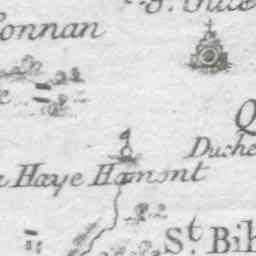 onnan
Q
Duche
Haye Hamont
S.t Bih